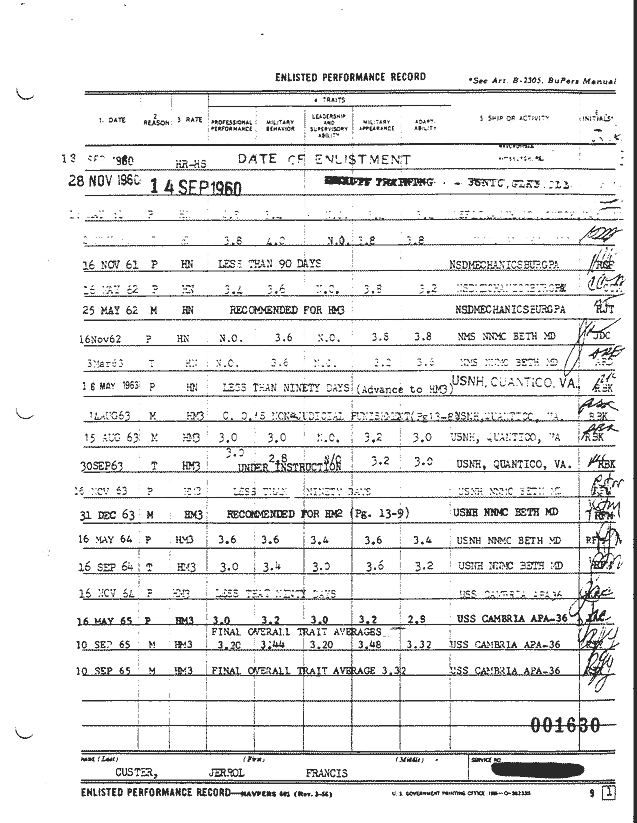 ENLISTED PERFORMANCE RECORD *See Art. B-2305, BuPers Manual
4 TRAITS
1. DATE 2 REASON 3 RATE PROFESSIONAL PERFORMANCE MILITARY BEHAVIOR LEADERSHIP AND SUPERVISORY ABILITY MILITARY APPEARANCE ADAPT- ABILITY 5 SHIP OR ACTIVITY INITIALS*
13 SEP 1960 HR-HS DATE OF ENLISTMENT
28 NOV 1960 14 SEP 1960 RECRUIT TRAINING
MAY 61 P HN
3.8 4.0 N.O. 3.8 3.8
16 NOV 61 P HN LESS THAN 90 DAYS NSDMECHANICSBURGPA RSP
16 MAY 62 P HN 3.4 3.6 N.O. 3.8 3.2 NSDMECHANICSBURGPA
25 MAY 62 M HN RECOMMENDED FOR HM3 NSDMECHANICSBURGPA RJT
16Nov62 P HN N.O. 3.6 N.O. 3.6 3.8 NMS NNMC BETH MD JDC
3Mar63 T HN N.O. 3.6 N.O. 3.2 3.6 NMS NNMC BETH MD
16 MAY 1963 P HN LESS THAN NINETY DAYS (Advance to HM3) USNH, QUANTICO, VA. RBK
14AUG63 M HM3 C. O.'S NON-JUDICIAL PUNISHMENT(Pg13- USNH,QUANTICO, VA RBK
15 AUG 63 M HM3 3.0 3.0 N.O. 3.2 3.0 USNH, QUANTICO, VA RBK
30SEP63 T HM3 3.0 2.8 N/O 3.2 3.0 USNH, QUANTICO, VA. RBK
UNDER INSTRUCTION
16 NOV 63 P HM3 LESS THAN NINETY DAYS USNH NNMC BETH MD RFM
31 DEC 63 M HM3 RECOMMENDED FOR HM2 (Pg. 13-9) USNH NNMC BETH MD RFM
16 MAY 64 P HM3 3.6 3.6 3.4 3.6 3.4 USNH NNMC BETH MD RFM
16 SEP 64 T HM3 3.0 3.4 3.0 3.6 3.2 USNH NNMC BETH MD
16 NOV 64 P HM3 LESS THAT NINTY DAYS USS CAMBRIA APA-36
16 MAY 65 P HM3 3.0 3.2 3.0 3.2 2.9 USS CAMBRIA APA-36
FINAL OVERALL TRAIT AVERAGES
10 SEP 65 M HM3 3.20 3.44 3.20 3.48 3.32 USS CAMBRIA APA-36
10 SEP 65 M HM3 FINAL OVERALL TRAIT AVERAGE 3.32 USS CAMBRIA APA-36
001630
NAME (Last) (First) (Middle) SERVICE NO
CUSTER, JERROL FRANCIS
ENLISTED PERFORMANCE RECORD—NAVPERS 601 (Rev. 3-56) U. S. GOVERNMENT PRINTING OFFICE 9 1